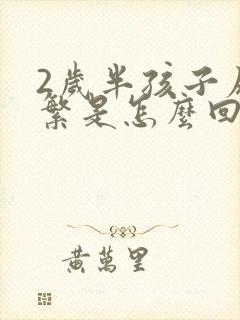 2歲半孩子
繁是怎麼回
黃萬里